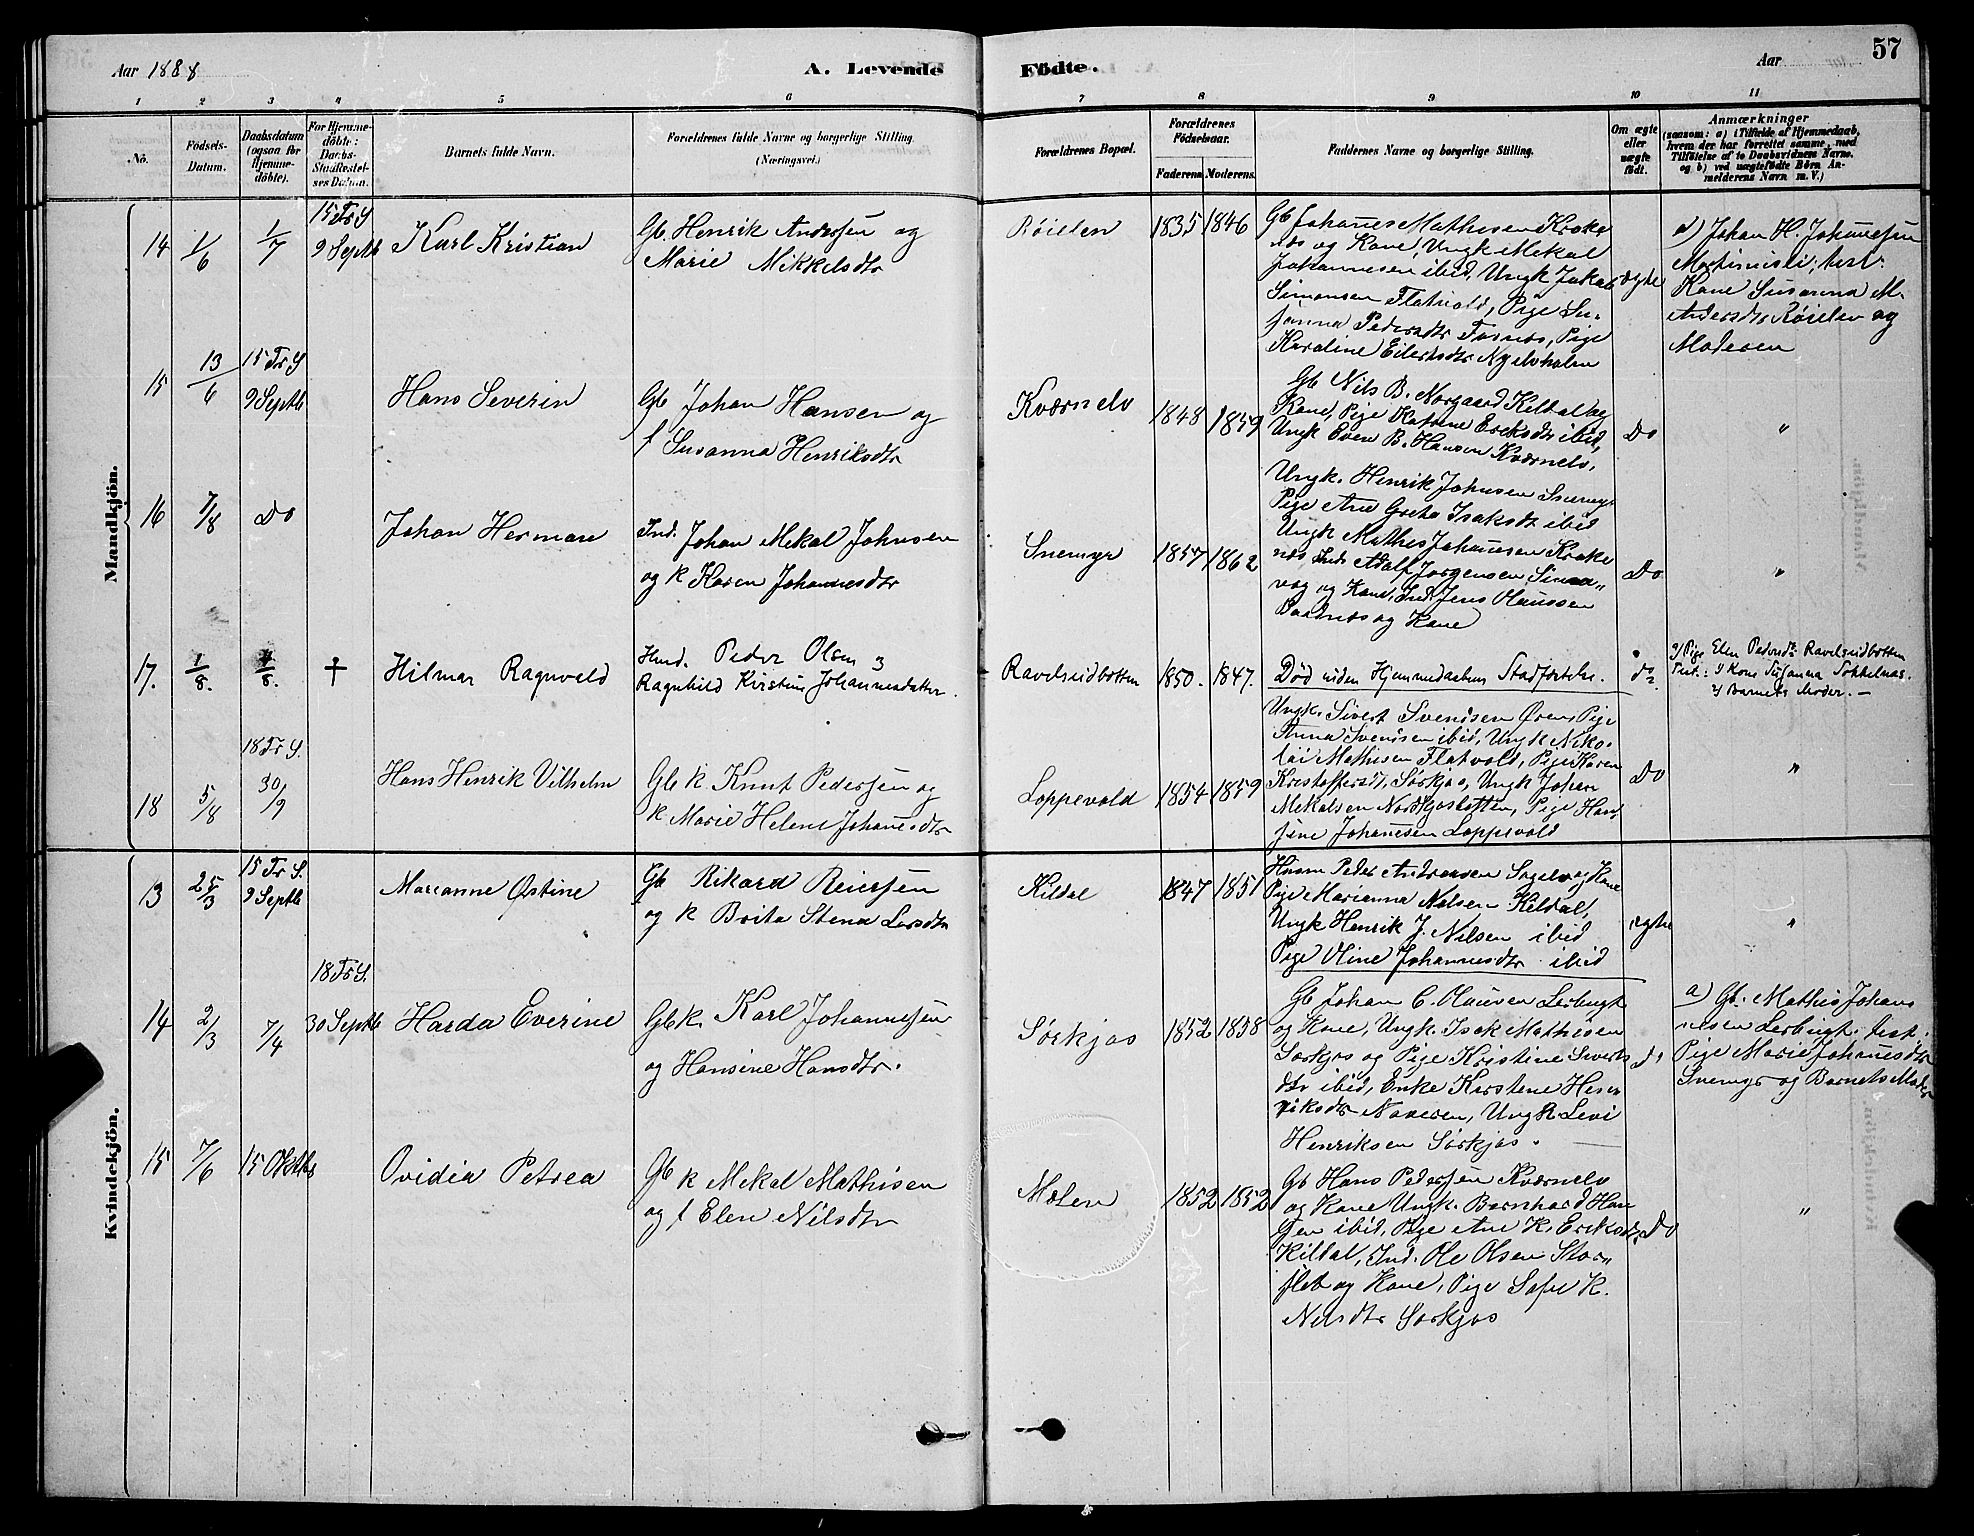 57
Aar 1888
A. Levende
Födte.
Aar
1 2 3 4 5 6 7 8 9 10 11
No.
Födsels-
Datum.
Daabsdatum
(ogsaa for
Hjemme-
döbte).
For Hjemme-
döbte:
Daabs-
Stadfæstel-
ses Datum.
Barnets fulde Navn.
Forældrenes fulde Navne og borgerlige Stilling.
(Næringsvei.)
Forældrenes Bopæl.
Forældrenes
Födselsaar.
Faderens Moderens.
Faddernes Navne og borgerlige Stilling.
Om ægte
eller
uægte
födt.
Anmærkninger
(saasom: a) i Tilfælde af Hjemmedaab,
hvem der har forrettet samme, med
Tilföielse af to Daabsvidners Navne,
og b) ved uægtefödte Börn An-
melderens Navn m. V.)
Mandkjön.
14
1/6
1/7
15 Tr S
9 Septb
Karl Kristian
Gb. Henrik Andersen og
Marie Mikkelsdtr
Röielen
1835 1846
Gb Johanes Mathesen Krake
nes og Kone, Ungk Mekal
Johannesen ibid, Ungk Jakob
Simonsen Flatvold, Pige Su-
sanna Pedersdtr Fosnes, Pige
Karoline Eilertsdtr Nyelvholm
ægte
a) Johan H. Johanesen
test.
Kone Susanna M.
Andersdtr Röielen og
Moderen
15
13/6
15 Tr S
9 Septb
Hans Severin
Gb Johan Hansen og
f Susanna Henriksdtr
Kværnelv
1848 1859
Gb Nils B. Norgaard Kildal og
Kone, Pige Katrine Eriksdtr ibid,
Ungk Even B. Hansen Kværnelv,
Do
"
16
7/8
Do
Johan Herman
Ind. Johan Mekal Johnsen
og k Karen Johannesdtr
Snemyr
1857 1862
Ungk. Henrik Johnsen Snemyr
Pige Ane Greta Isaksdt ibid
Ungk Mathis Johanesen Krake
nes, Inds Adolf Jörgensen Sima-
vag og Kone, Ind. Jens Olaussen
og Kone
Do
"
17.
1/8.
4/8.
†
Hilmar Ragnvald
Ind. Peder Olsen og
Ragnhild Kirstine Johannesdatter.
Ravelseidbotten
1850. 1847.
Död uden Hjemmedaabens Stadfæstelse.
do.
a) Pige Elen Pedersdtr Ravelseidbotten
Test.: 1 Kone Susanna Sokkelnes.
2 Barnets Moder. —
18
5/8
18 Tr S.
30/9
Hans Henrik Vilhelm
Gb k. Knut Pedersen og
k Marie Helene Johanesdtr
Loppevold
1854 1859
Ungk. Sivert Svendsen Ören, Pige
Anna Svendsen ibid, Ungk Niko-
lai Mathisen Flatvold, Pige Karen
Kristoffersdt, Sörkjos, Ungk Johan
Mekalsen Nordkjosbotten, Pige Han-
sine Johanesen Loppevold
Do
"
Kvindekjön.
13
25/3
15 Tr S.
9 Septb
Marianne Östine
Gb Rikard Reiersen
og k Brita Stena Larsdtr
Kildal
1847 1851
Husm Peder Andreasen Sagelv og Kone
Pige Marianna Nilsen Kildal,
Ungk Henrik J. Nilsen ibid
Pige Oline Johannesdtr ibid
ægte
"
14
2/3
7/4
18 Tr S.
30 Septb
Harda Everine
Gb k. Karl Johannesen
og Hansine Hansdtr.
Sörkjos
1852 1858
Gb Johan C. Olausen Lerbugt
og Kone, Ungk. Isak Mathisen
Sörkjos og Pige Kristine Siverts
dtr ibid, Enke Kirstine Hen-
riksdtr Naveren, Ungk Levi
Henriksen Sörkjos.
do
a) Gb. Mathis Johan
nesen Lerbugt. test;
Pige Marie Johanesdtr
Snemyr og Barnets Moder
15
7/6
15 Oktbr
Ovidia Petrea
Gb k Mekal Mathisen
og f Elen Nilsdtr
Molen
1852 1852
Gb Hans Pedersen Kværnelv
og Kone Ungk. Bernhard Han
sen ibid, Pige Ane K. Eriksdtr,
Kildal, Ind. Ole Olsen Stor-
slet og Kone, Pige Sofie K.
Nilsdtr Sörkjos
Do
"